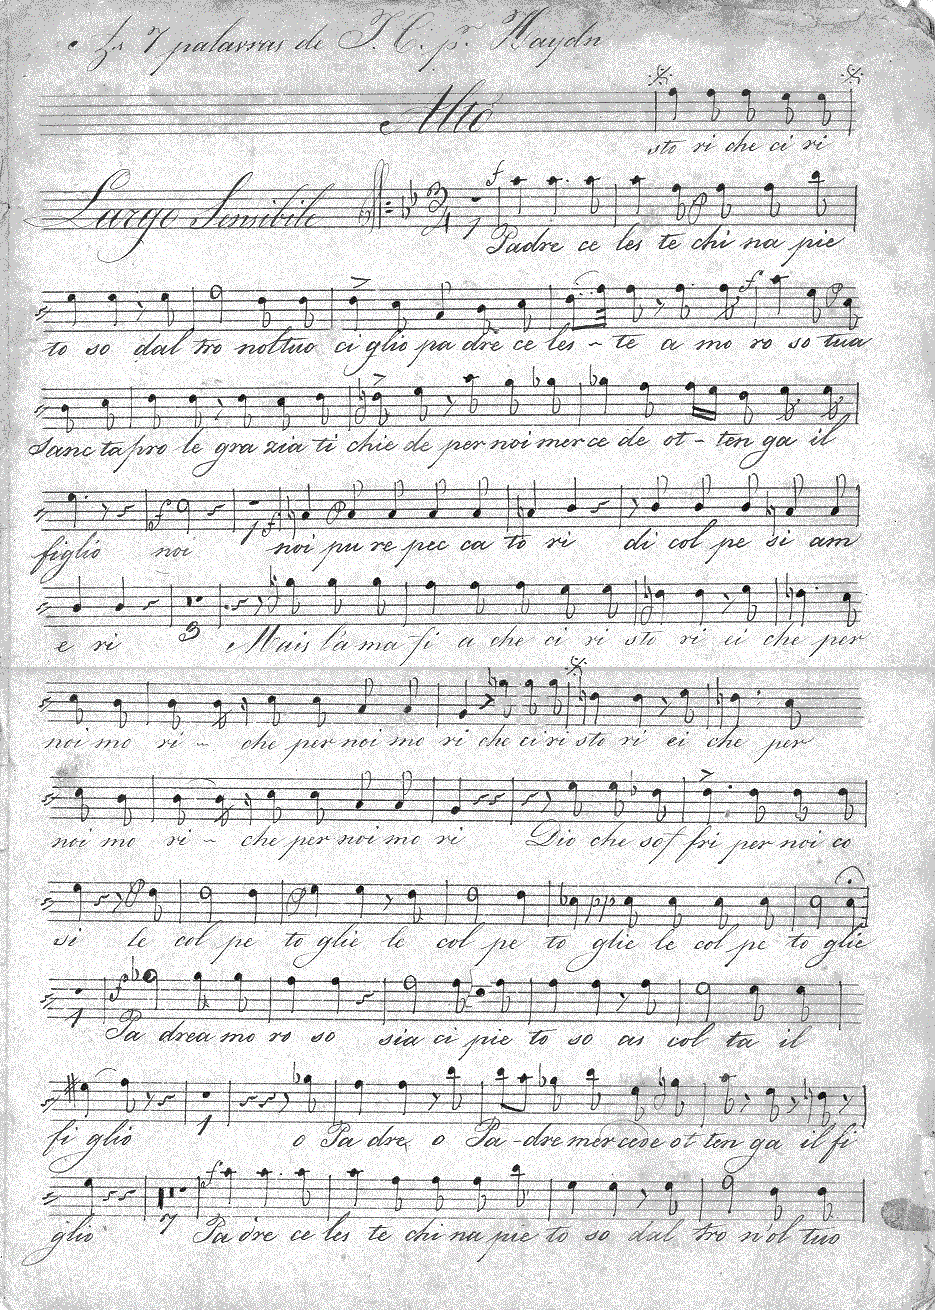 As 7 palavras de J. C. pr. Haydn
Alto
sto ri che ci ri
Largo Sensibile
3
4
f
1
Padre ce les te chi na pie
f
to so dal tro nol tuo ci glio pa dre ce les - te a mo ro so tua
Sanc ta pro le gra zia ti chie de per noi mer ce de ot - ten ga il
figlio noi noi pu re pec ca to ri di col pe si am
e ri Mais la ma fi a che ci ri sto ri ci che per
3
noi mo ri - che per noi mo ri che ci ri sto ri ci che per
noi mo ri - che per noi mo ri Dio che sof fri per noi co
si le col pe to glie le col pe to glie le col pe to glie
1
f
Pa drea mo ro so sia ci pie to so as col ta il
fi glio o Pa dre o Pa - dre mercede ot ten ga il fi
1
f
7
glio Pa dre ce les te chi na pie to so dal tro n'ol tuo